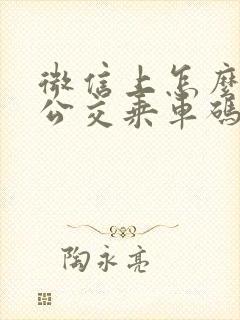 微信上怎麼
公交乘車碼
陶永亮